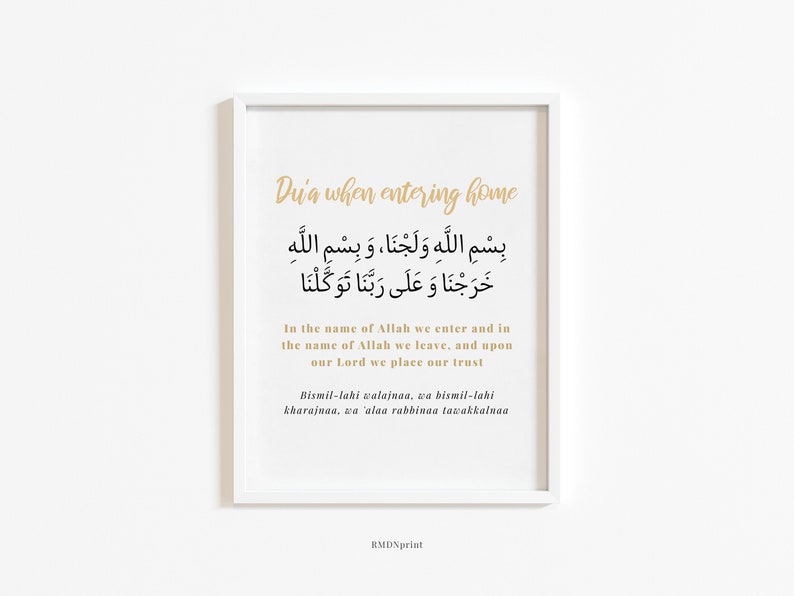 Du'a when entering home
بِسْمِ اللَّهِ وَلَجْنَا، وَ بِسْمِ اللَّهِ
خَرَجْنَا وَ عَلَى رَبَّنَا تَوَكَّلْنَا
In the name of Allah we enter and in
the name of Allah we leave, and upon
our Lord we place our trust
Bismil-lahi walajnaa, wa bismil-lahi
kharajnaa, wa 'alaa rabbinaa tawakkalnaa
RMDNprint